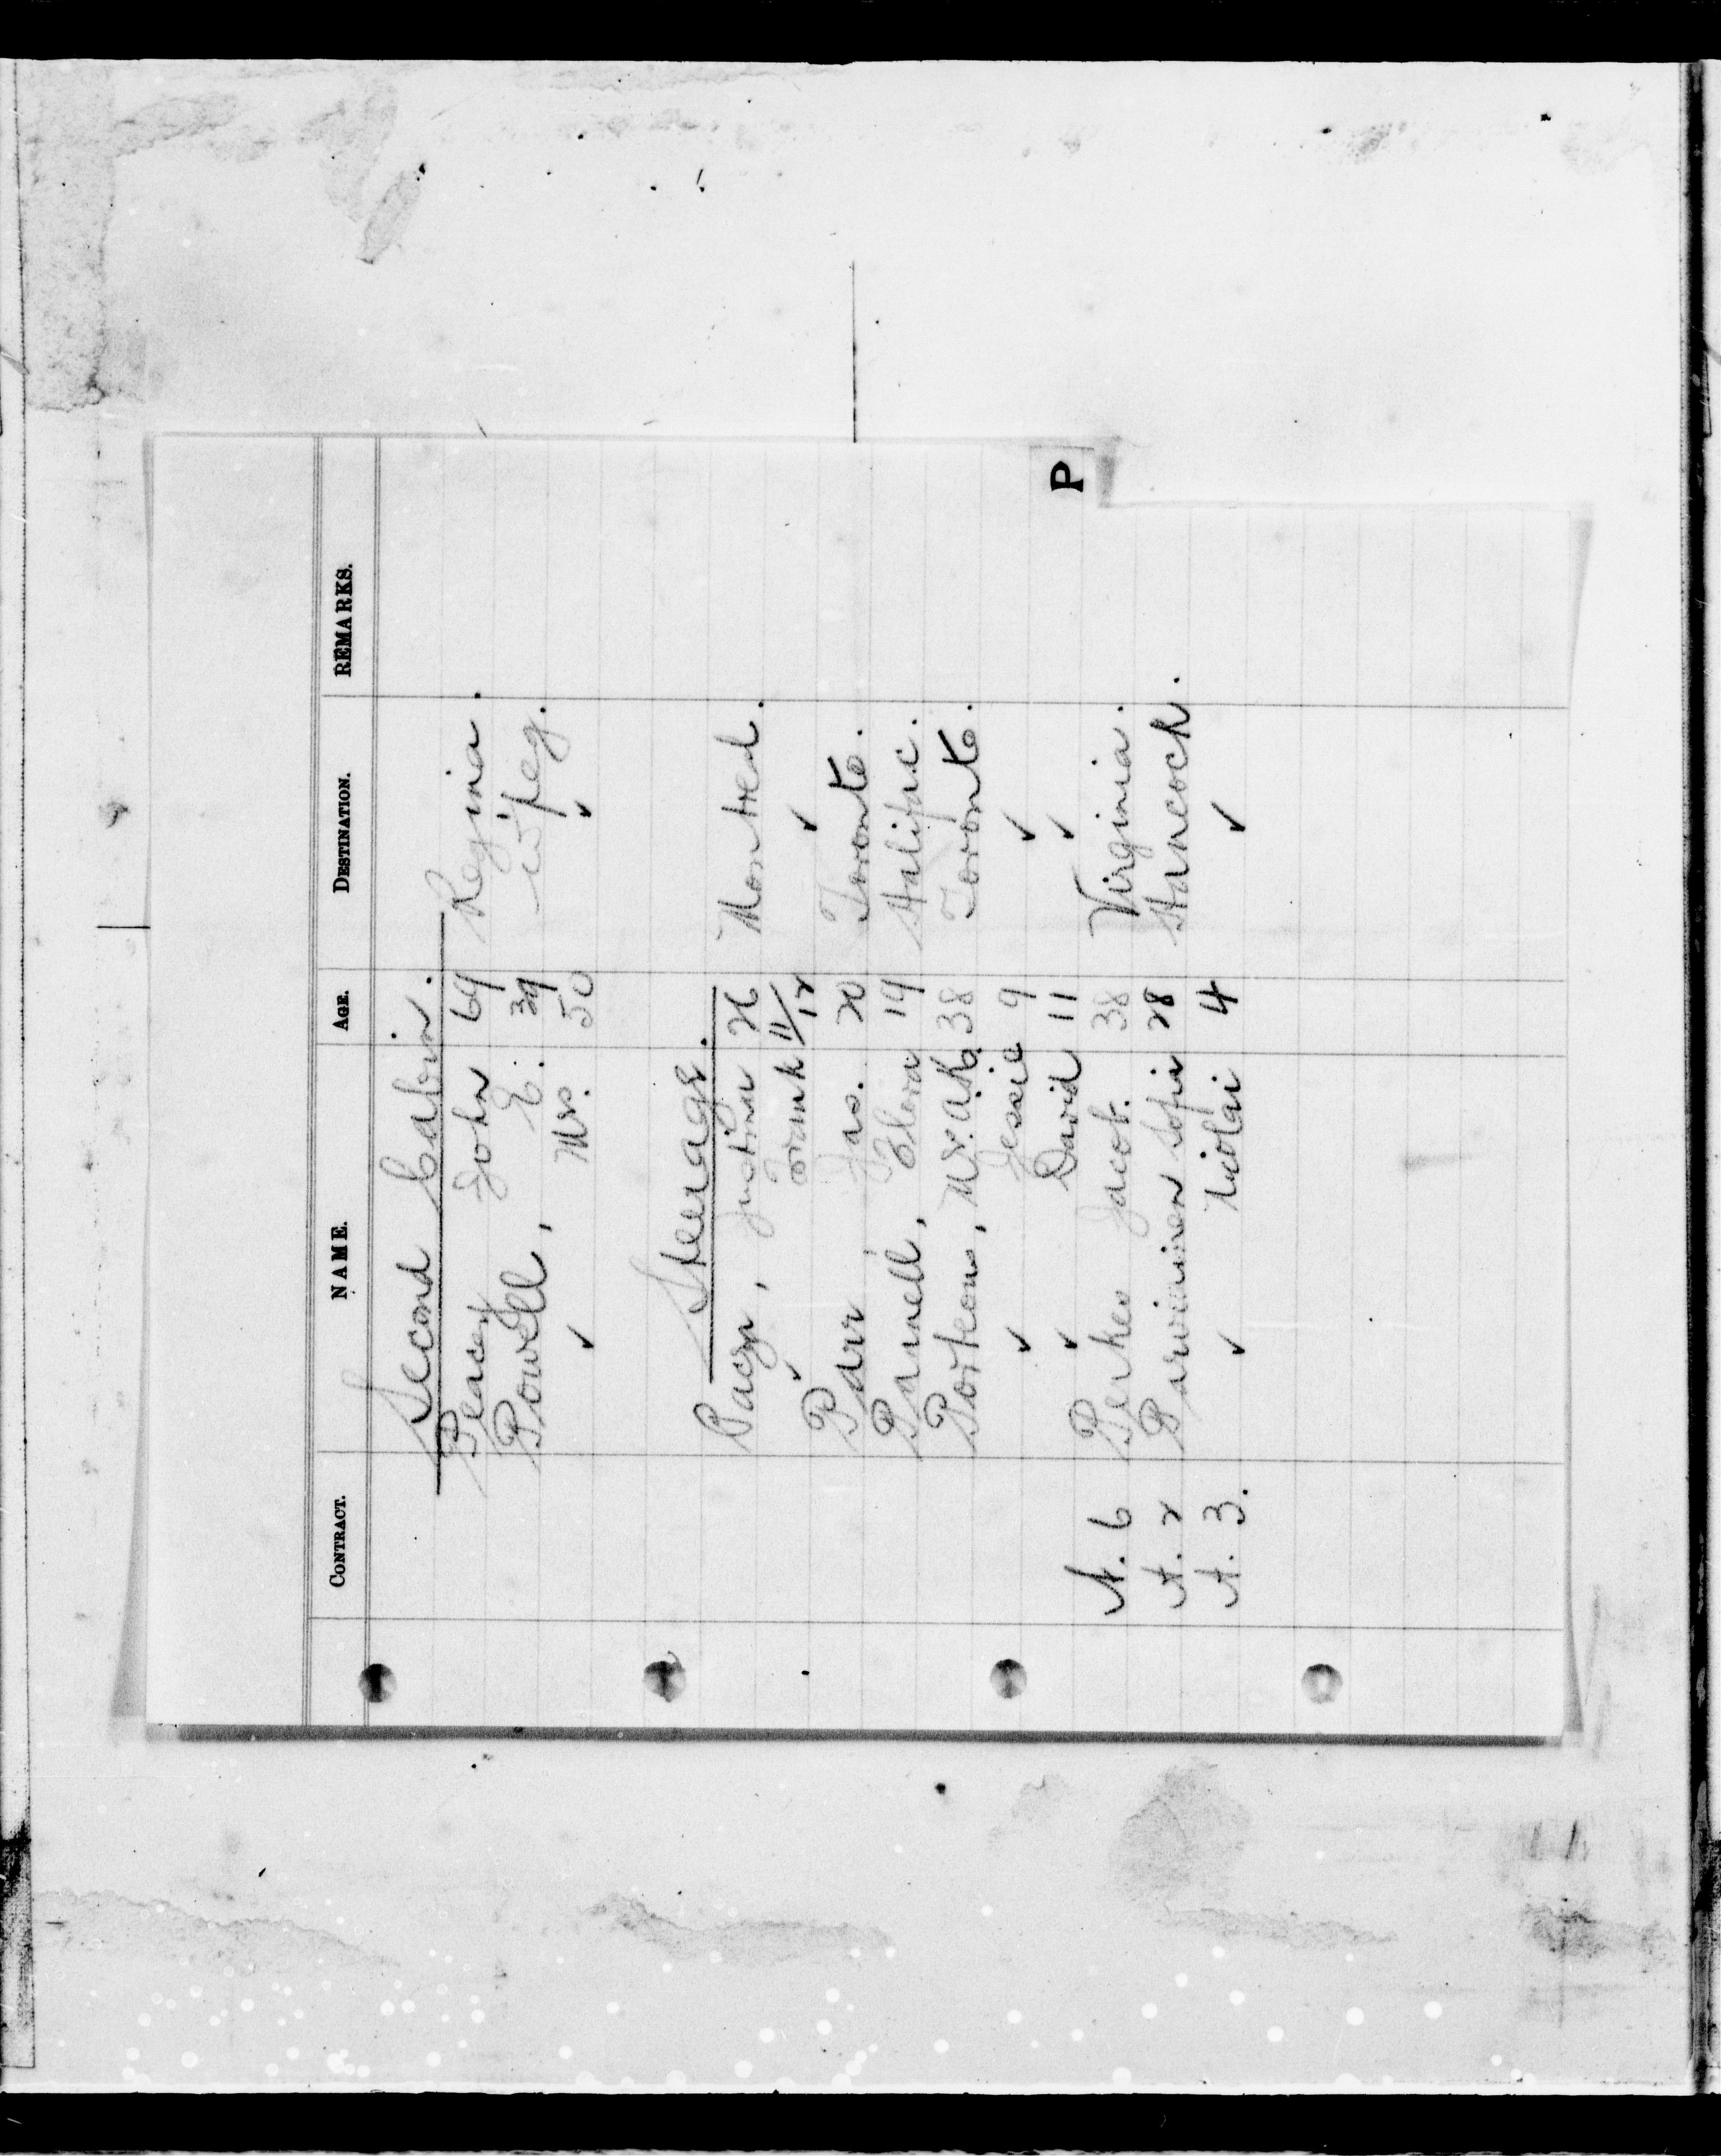 CONTRACT. NAME. AGE. DESTINATION. REMARKS.
Second Cabin.
Peacey John 69 Regina.
Powell, E. 39 W'peg.
✓ Mrs. 50 ✓
Steerage.
Justina 26 Montreal.
✓ Frank 11/12 ✓
Parr Jas. 20 Toronto.
Pannell, Flora 19 Halifax.
Porteous, Mrs. A.K. 38 Toronto.
✓ Jessie 9 ✓
✓ David 11 ✓
P
A. 6 Perkes Jacob. 38 Virginia.
A. 2 Parviainen Sofia 28 Hancock.
A. 3. ✓ Nicolai 4 ✓